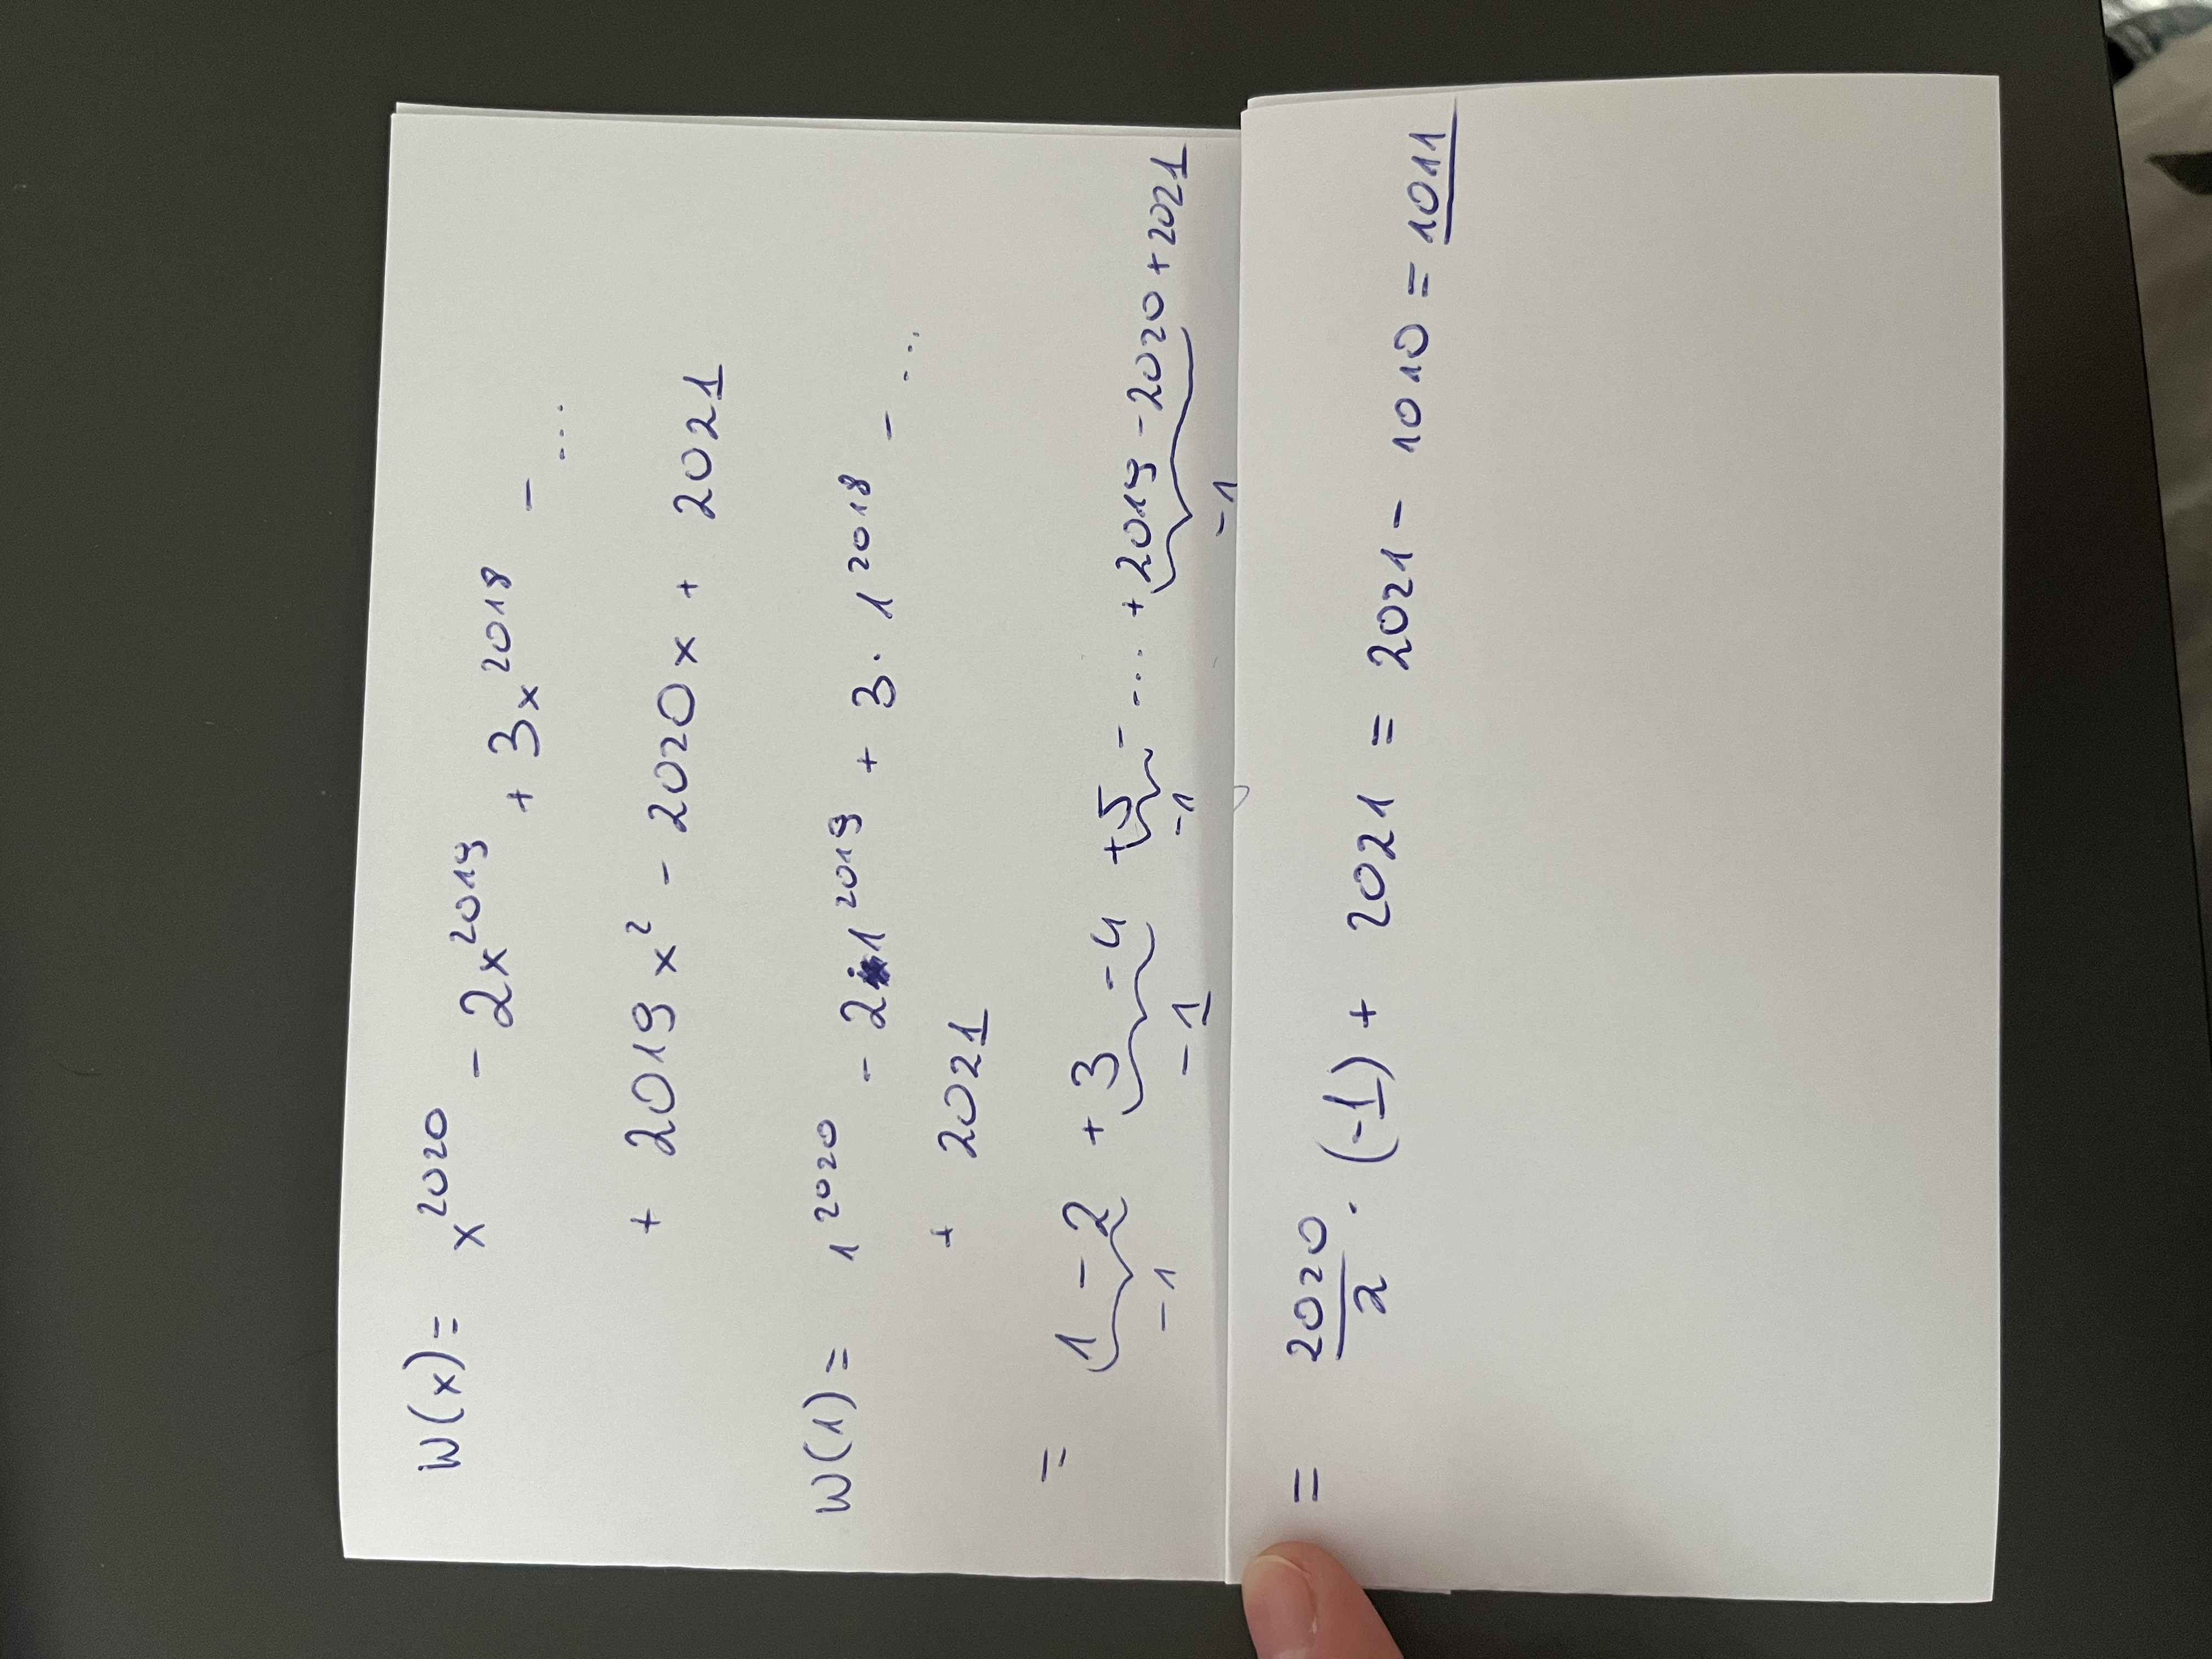 W(x) = x²⁰²⁰ - 2x²⁰¹⁹ + 3x²⁰¹⁸ - ...
+ 2019x² - 2020x + 2021
W(1) = 1²⁰²⁰ - 2·1²⁰¹⁹ + 3·1²⁰¹⁸ - ...
+ 2021
= 1 - 2 + 3 - 4 + 5 - ... + 2019 - 2020 + 2021
-1 -1 -1 -1
= 2020/2 · (-1) + 2021 = 2021 - 1010 = 1011